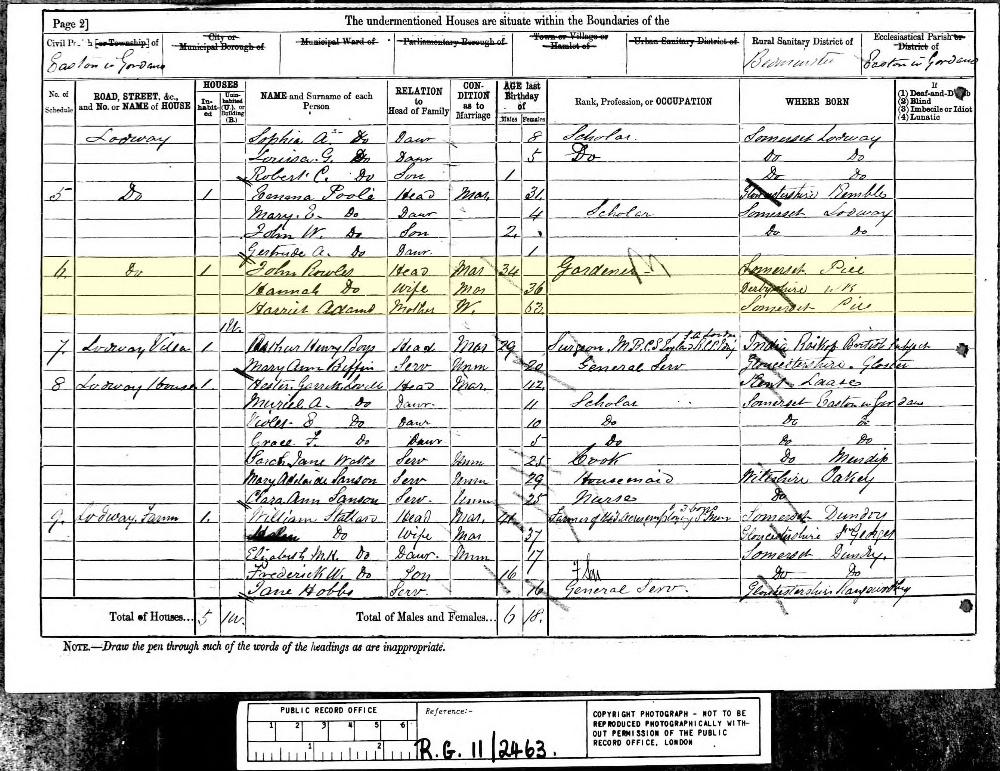 Page 2]
The undermentioned Houses are situate within the Boundaries of the
Civil Parish [or Township] of
City or Municipal Borough of
Municipal Ward of
Parliamentary Borough of
Town or Village or Hamlet of
Urban Sanitary District of
Rural Sanitary District of
Ecclesiastical Parish or District of
Easton in Gordano
Bedminster
Easton in Gordano
No. of Schedule
ROAD, STREET, &c., and No. or NAME of HOUSE
HOUSES
Inhabited
Uninhabited (U.), or Building (B.)
NAME and Surname of each Person
RELATION to Head of Family
CONDITION as to Marriage
AGE last Birthday of
Males
Females
Rank, Profession, or OCCUPATION
WHERE BORN
If
(1) Deaf-and-Dumb
(2) Blind
(3) Imbecile or Idiot
(4) Lunatic
Lodway Sophia A. Do Daur 8 Scholar Somerset Lodway
Louisa G. Do Daur 5 Do Do Do
Robert C. Do Son 1 Do Do
5 Do 1 Emma Poole Head Mar. 31 Gloucestershire Kemble
Mary E. Do Daur 4 Scholar Somerset Lodway
John W. Do Son 2 Do Do
Gertrude A. Do Daur. 1
6. Do 1 John Rowles Head Mar 34 Gardener Somerset Pill
Hannah Do Wife Mar 36 Derbyshire
Harriet Adams Mother W. 63 Somerset Pill
1U.
7. Lodway Villa 1 Arthur Henry Boys Head Mar 29 Surgeon, M.R.C.S. India
Mary Ann Biffin Serv Unm 20 General Serv Gloucestershire Gloster
8 Lodway House 1. Hester Head Mar. 42 Kent
Muriel A. Do Dawr. 11 Scholar Somerset Easton in Gordano
Violet E Do Dawr 10 Do Do Do
Grace F. Do Dawr 5 Do Do Do
Sarah Jane Watts Serv Unm 25 Cook Do Mendip
Mary Adelaide Sanson Serv Unm 29 Housemaid Wiltshire Oaksey
Clara Ann Sanson Serv. Unm 25 Nurse Do
9. Lodway Farm 1. William Stallard Head Mar. Farmer of Somerset Dundry
Do Wife Mar 37 Gloucestershire St Georges
Elizabeth M.H. Do Dawr. Unm 17 Somerset Dundry
Frederick W. Do Son 16 F Son Do Do
Jane Hobbs Serv. 16 General Serv. Gloucestershire
Total of Houses... 5 1U. Total of Males and Females... 6 18.
NOTE.—Draw the pen through such of the words of the headings as are inappropriate.
PUBLIC RECORD OFFICE
1 2 3 4 5 6
1 2
Reference:-
R.G. 11/2463.
COPYRIGHT PHOTOGRAPH - NOT TO BE
REPRODUCED PHOTOGRAPHICALLY WITH-
OUT PERMISSION OF THE PUBLIC
RECORD OFFICE, LONDON